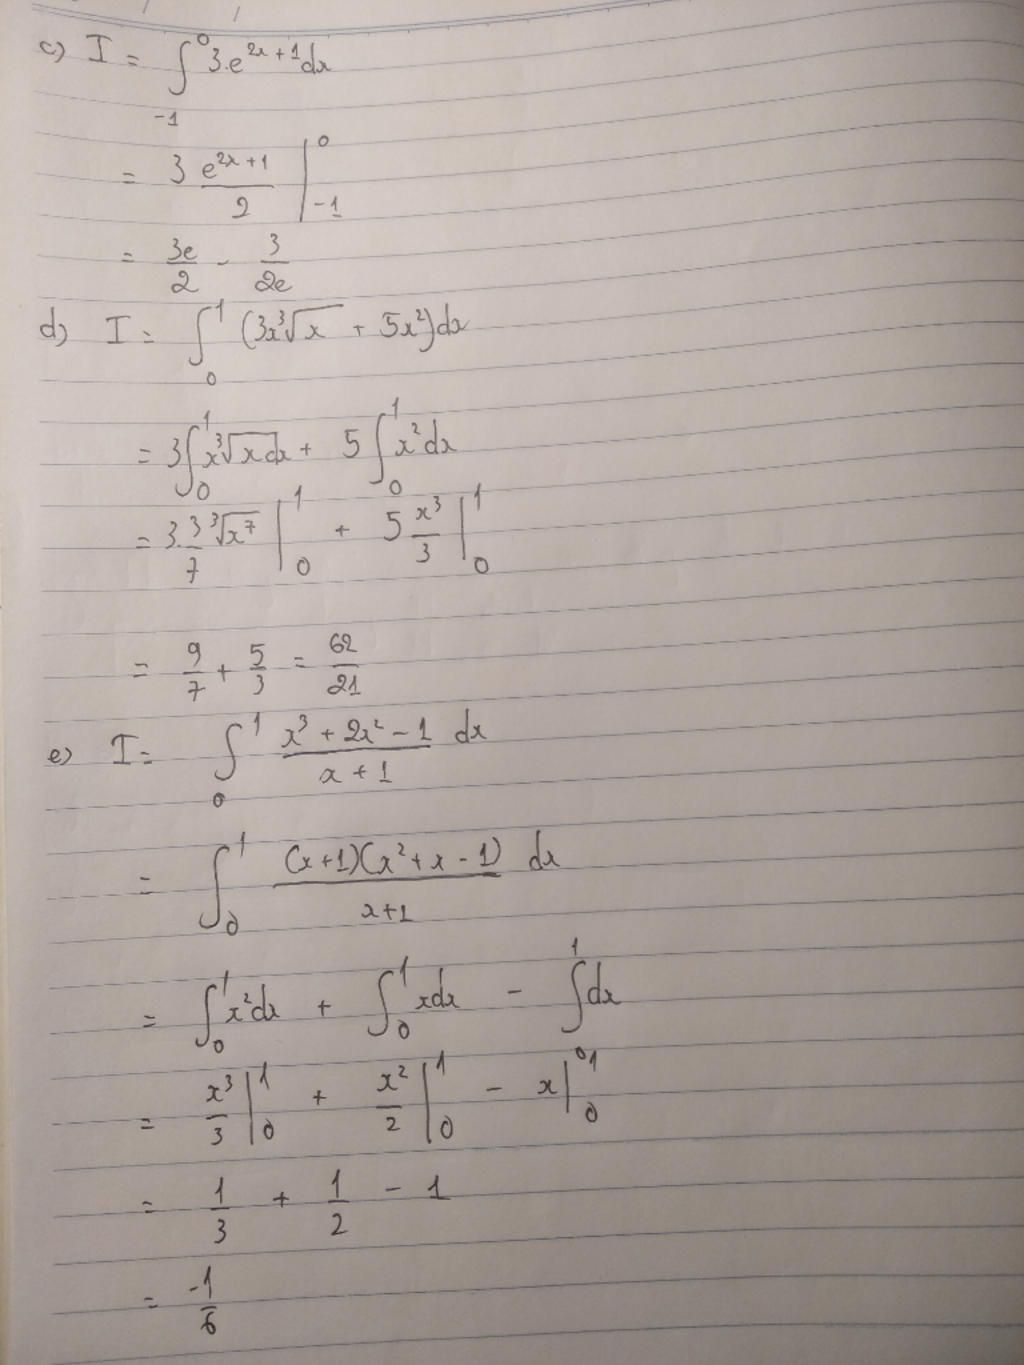 c) I = ∫_{-1}^{0} 3.e^{2x+1} dx
= 3 \frac{e^{2x+1}}{2} |_{-1}^{0}
= \frac{3e}{2} - \frac{3}{2e}
d) I = ∫_{0}^{1} (3x∛x + 5x²)dx
= 3∫_{0}^{1} x∛x dx + 5 ∫_{0}^{1} x² dx
= 3.\frac{3}{7} ∛x⁷ |_{0}^{1} + 5 \frac{x³}{3} |_{0}^{1}
= \frac{9}{7} + \frac{5}{3} = \frac{62}{21}
e) I = ∫_{0}^{1} \frac{x³ + 2x² - 1}{x + 1} dx
= ∫_{0}^{1} \frac{(x+1)(x² + x - 1)}{x+1} dx
= ∫_{0}^{1} x² dx + ∫_{0}^{1} x dx - ∫_{0}^{1} dx
= \frac{x³}{3} |_{0}^{1} + \frac{x²}{2} |_{0}^{1} - x |_{0}^{1}
= \frac{1}{3} + \frac{1}{2} - 1
= \frac{-1}{6}